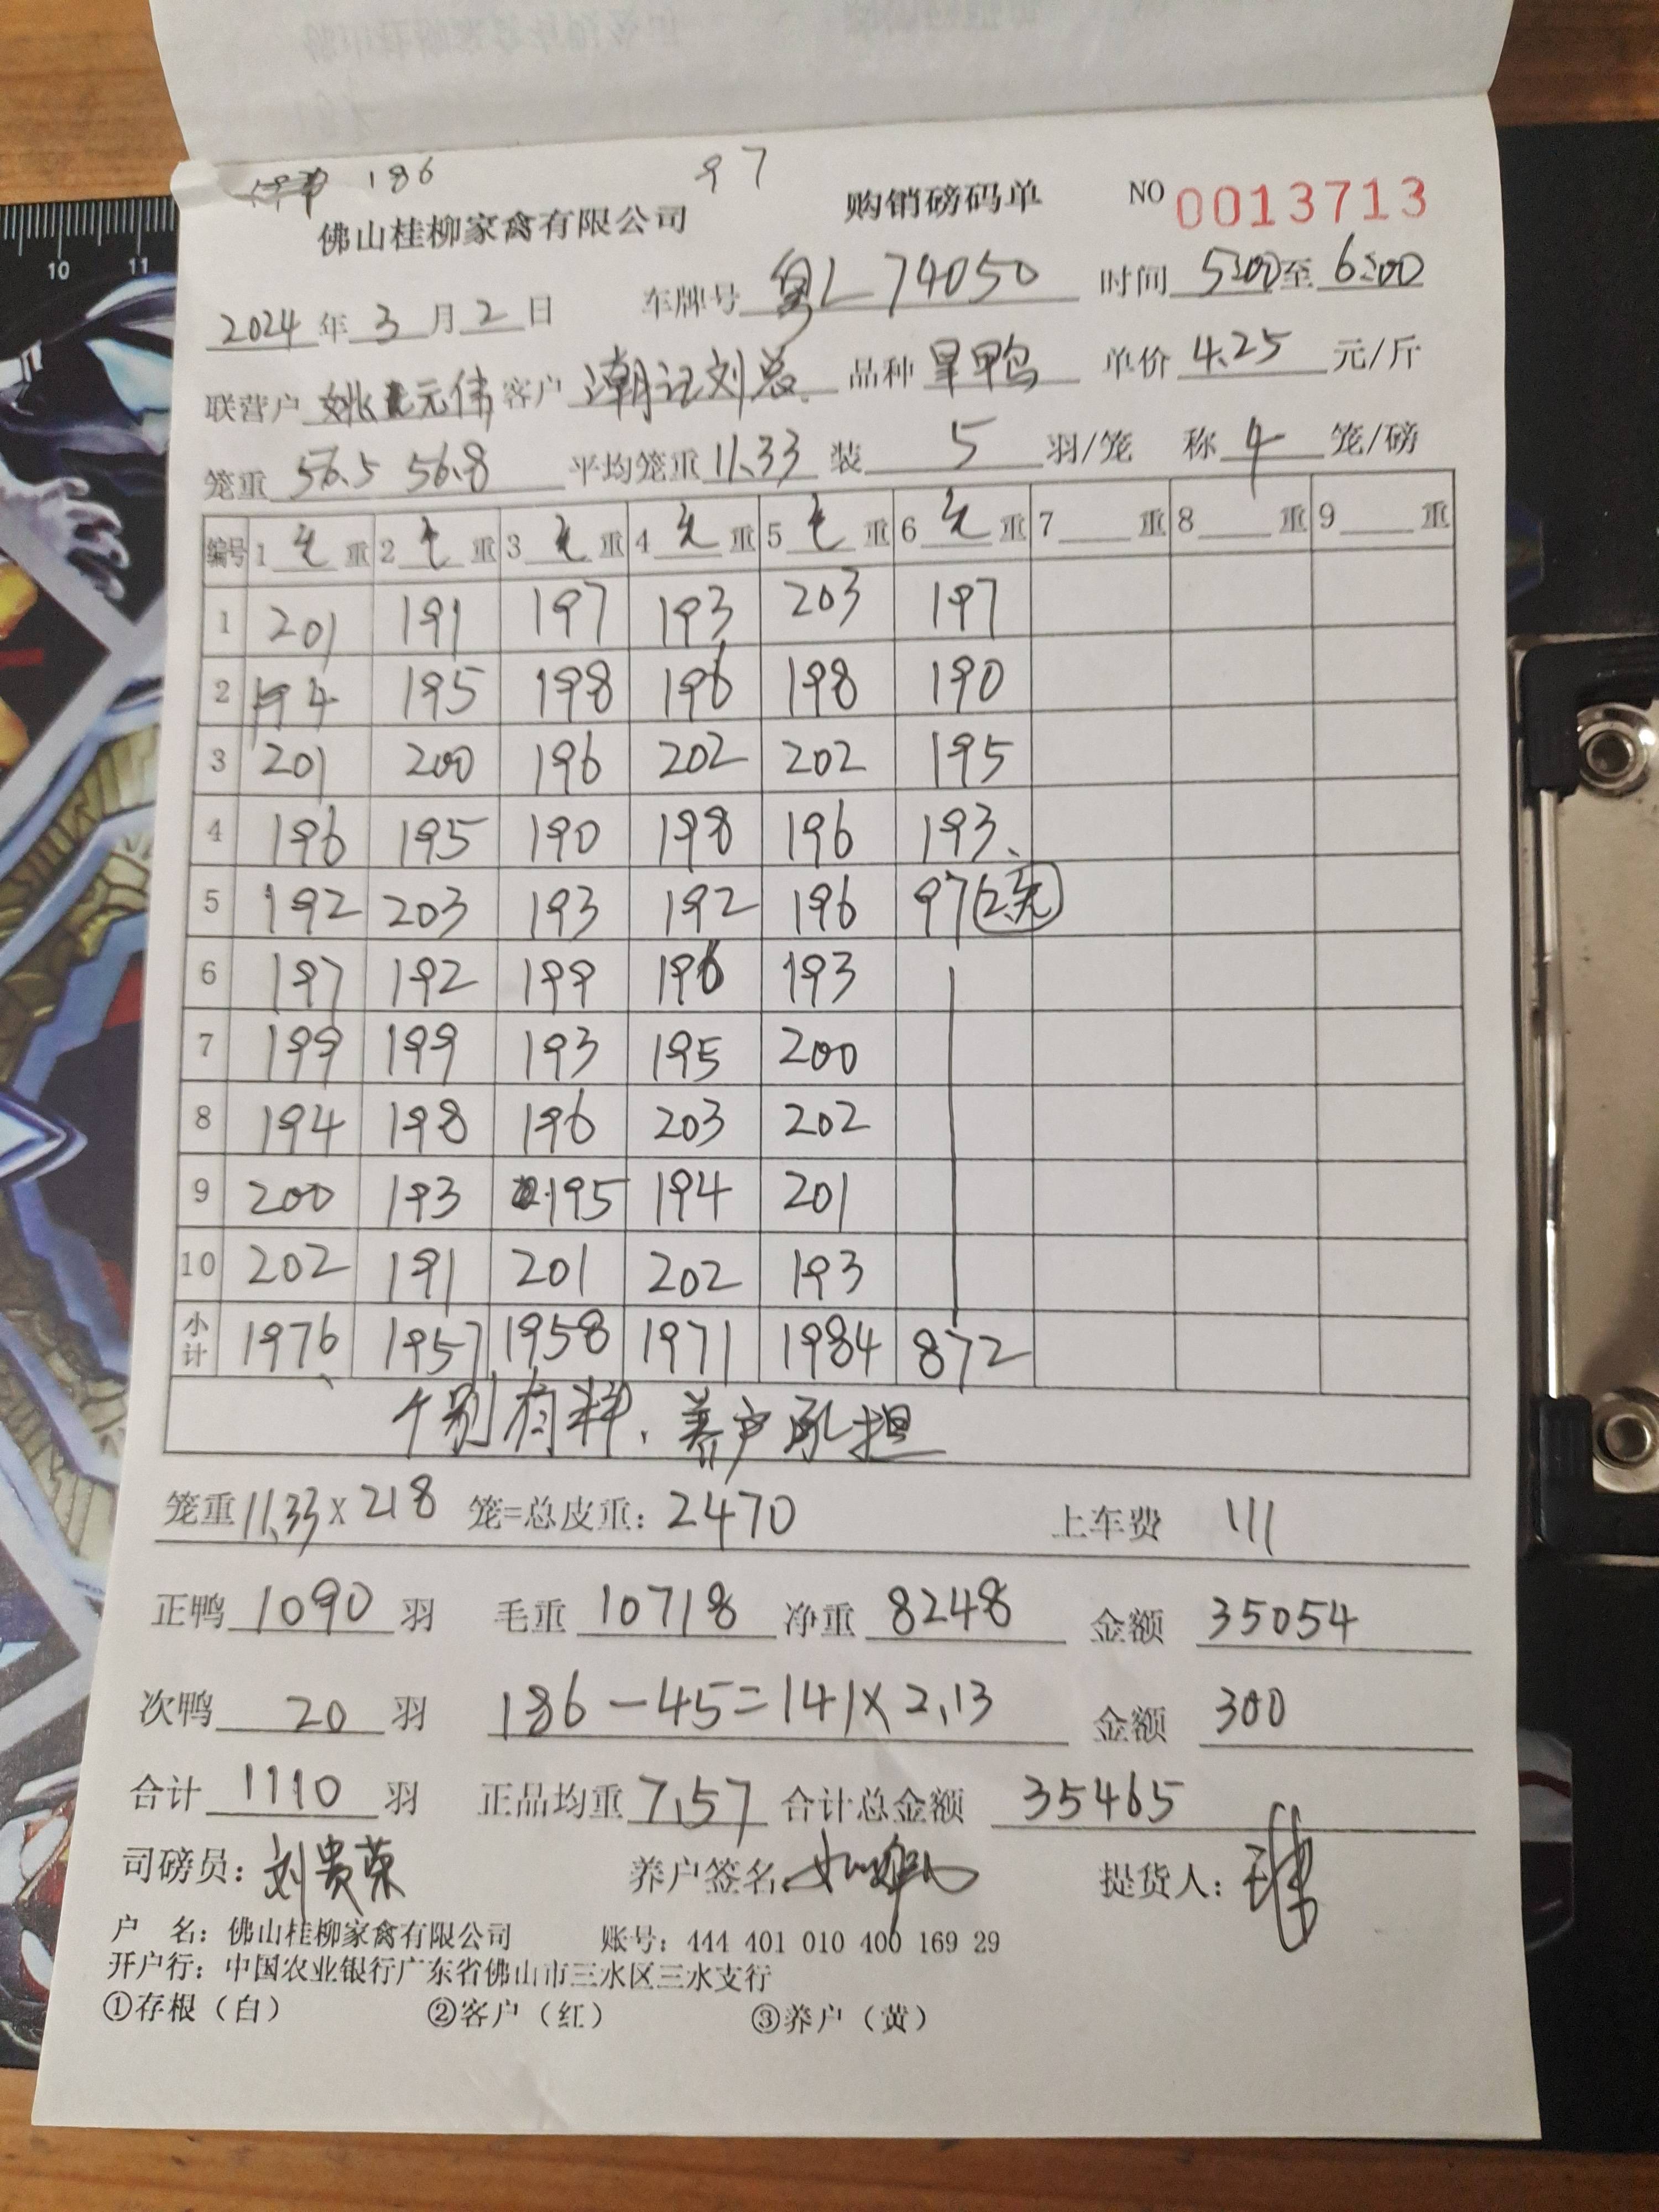 186 97
佛山桂柳家禽有限公司 购销磅码单 NO 0013713
2024年3月2日 车牌号 粤L 74050 时间 5:00至6:00
联营户 姚元伟 客户 潮记刘总 品种 旱鸭 单价 4.25 元/斤
笼重 56.5 56.8 平均笼重 11.33 装 5 羽/笼 称 4 笼/磅
编号 1 毛 重 2 毛 重 3 毛 重 4 毛 重 5 毛 重 6 毛 重 7 重 8 重 9 重
1 201 191 197 193 203 197
2 194 195 198 196 198 190
3 201 200 196 202 202 195
4 196 195 190 198 196 193、
5 192 203 193 192 196 97
6 197 192 199 196 193
7 199 199 193 195 200
8 194 198 196 203 202
9 200 193 195 194 201
10 202 191 201 202 193
小计 1976 1957 1958 1971 1984 872
个别有料、养户承担
笼重 11.33 x 218 笼=总皮重：2470 上车费 111
正鸭 1090 羽 毛重 10718 净重 8248 金额 35054
次鸭 20 羽 186－45＝141×2.13 金额 300
合计 1110 羽 正品均重 7.57 合计总金额 35465
司磅员：刘贵荣 养户签名 提货人：
户 名：佛山桂柳家禽有限公司 账号：444 401 010 400 169 29
开户行：中国农业银行广东省佛山市三水区三水支行
①存根（白） ②客户（红） ③养户（黄）